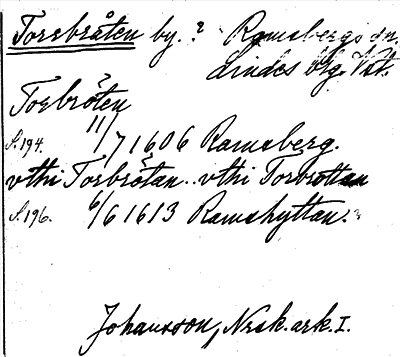 Torsbråten by. ? Ramsbergs sn.
Lindes blg. Vst.
Torbröten
S. 194. 11/7 1606 Ramsberg.
vthi Torbrötan.. vthi Torbrottan
S. 196. 6/6 1613 Ramshyttan.
Johansson, Nesk. ark. I.